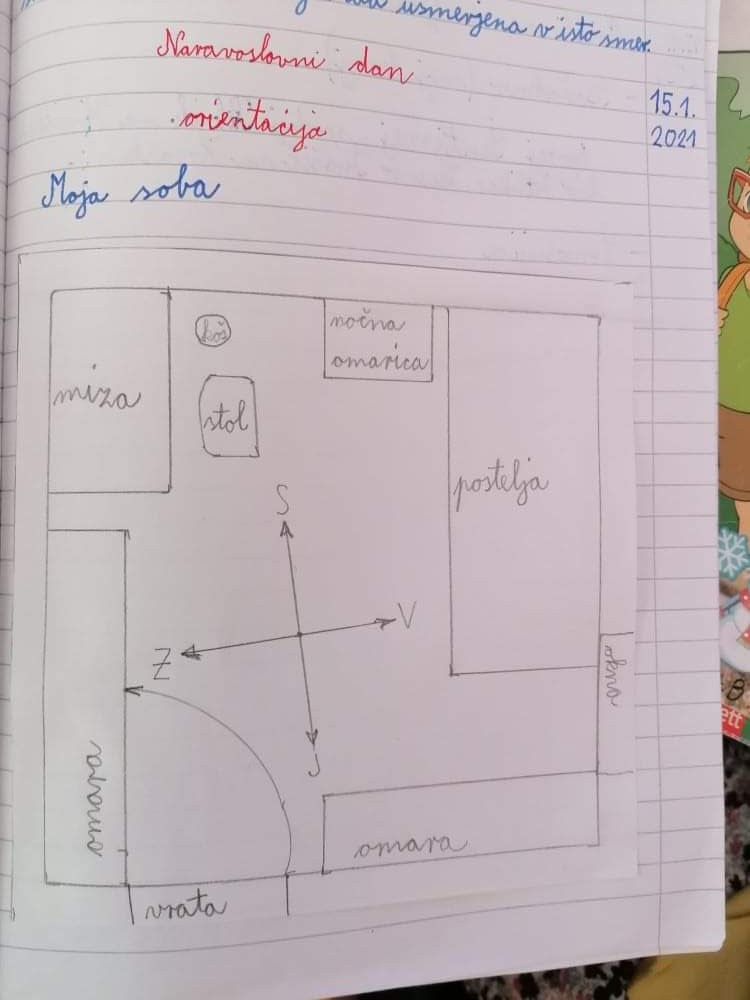 usmerjena v isto smer.
Naravoslovni dan
orientacija
15.1.
2021
Moja soba
koš
nočna
omarica
miza
stol
postelja
S
V
Z
J
okno
omara
omara
vrata
ett